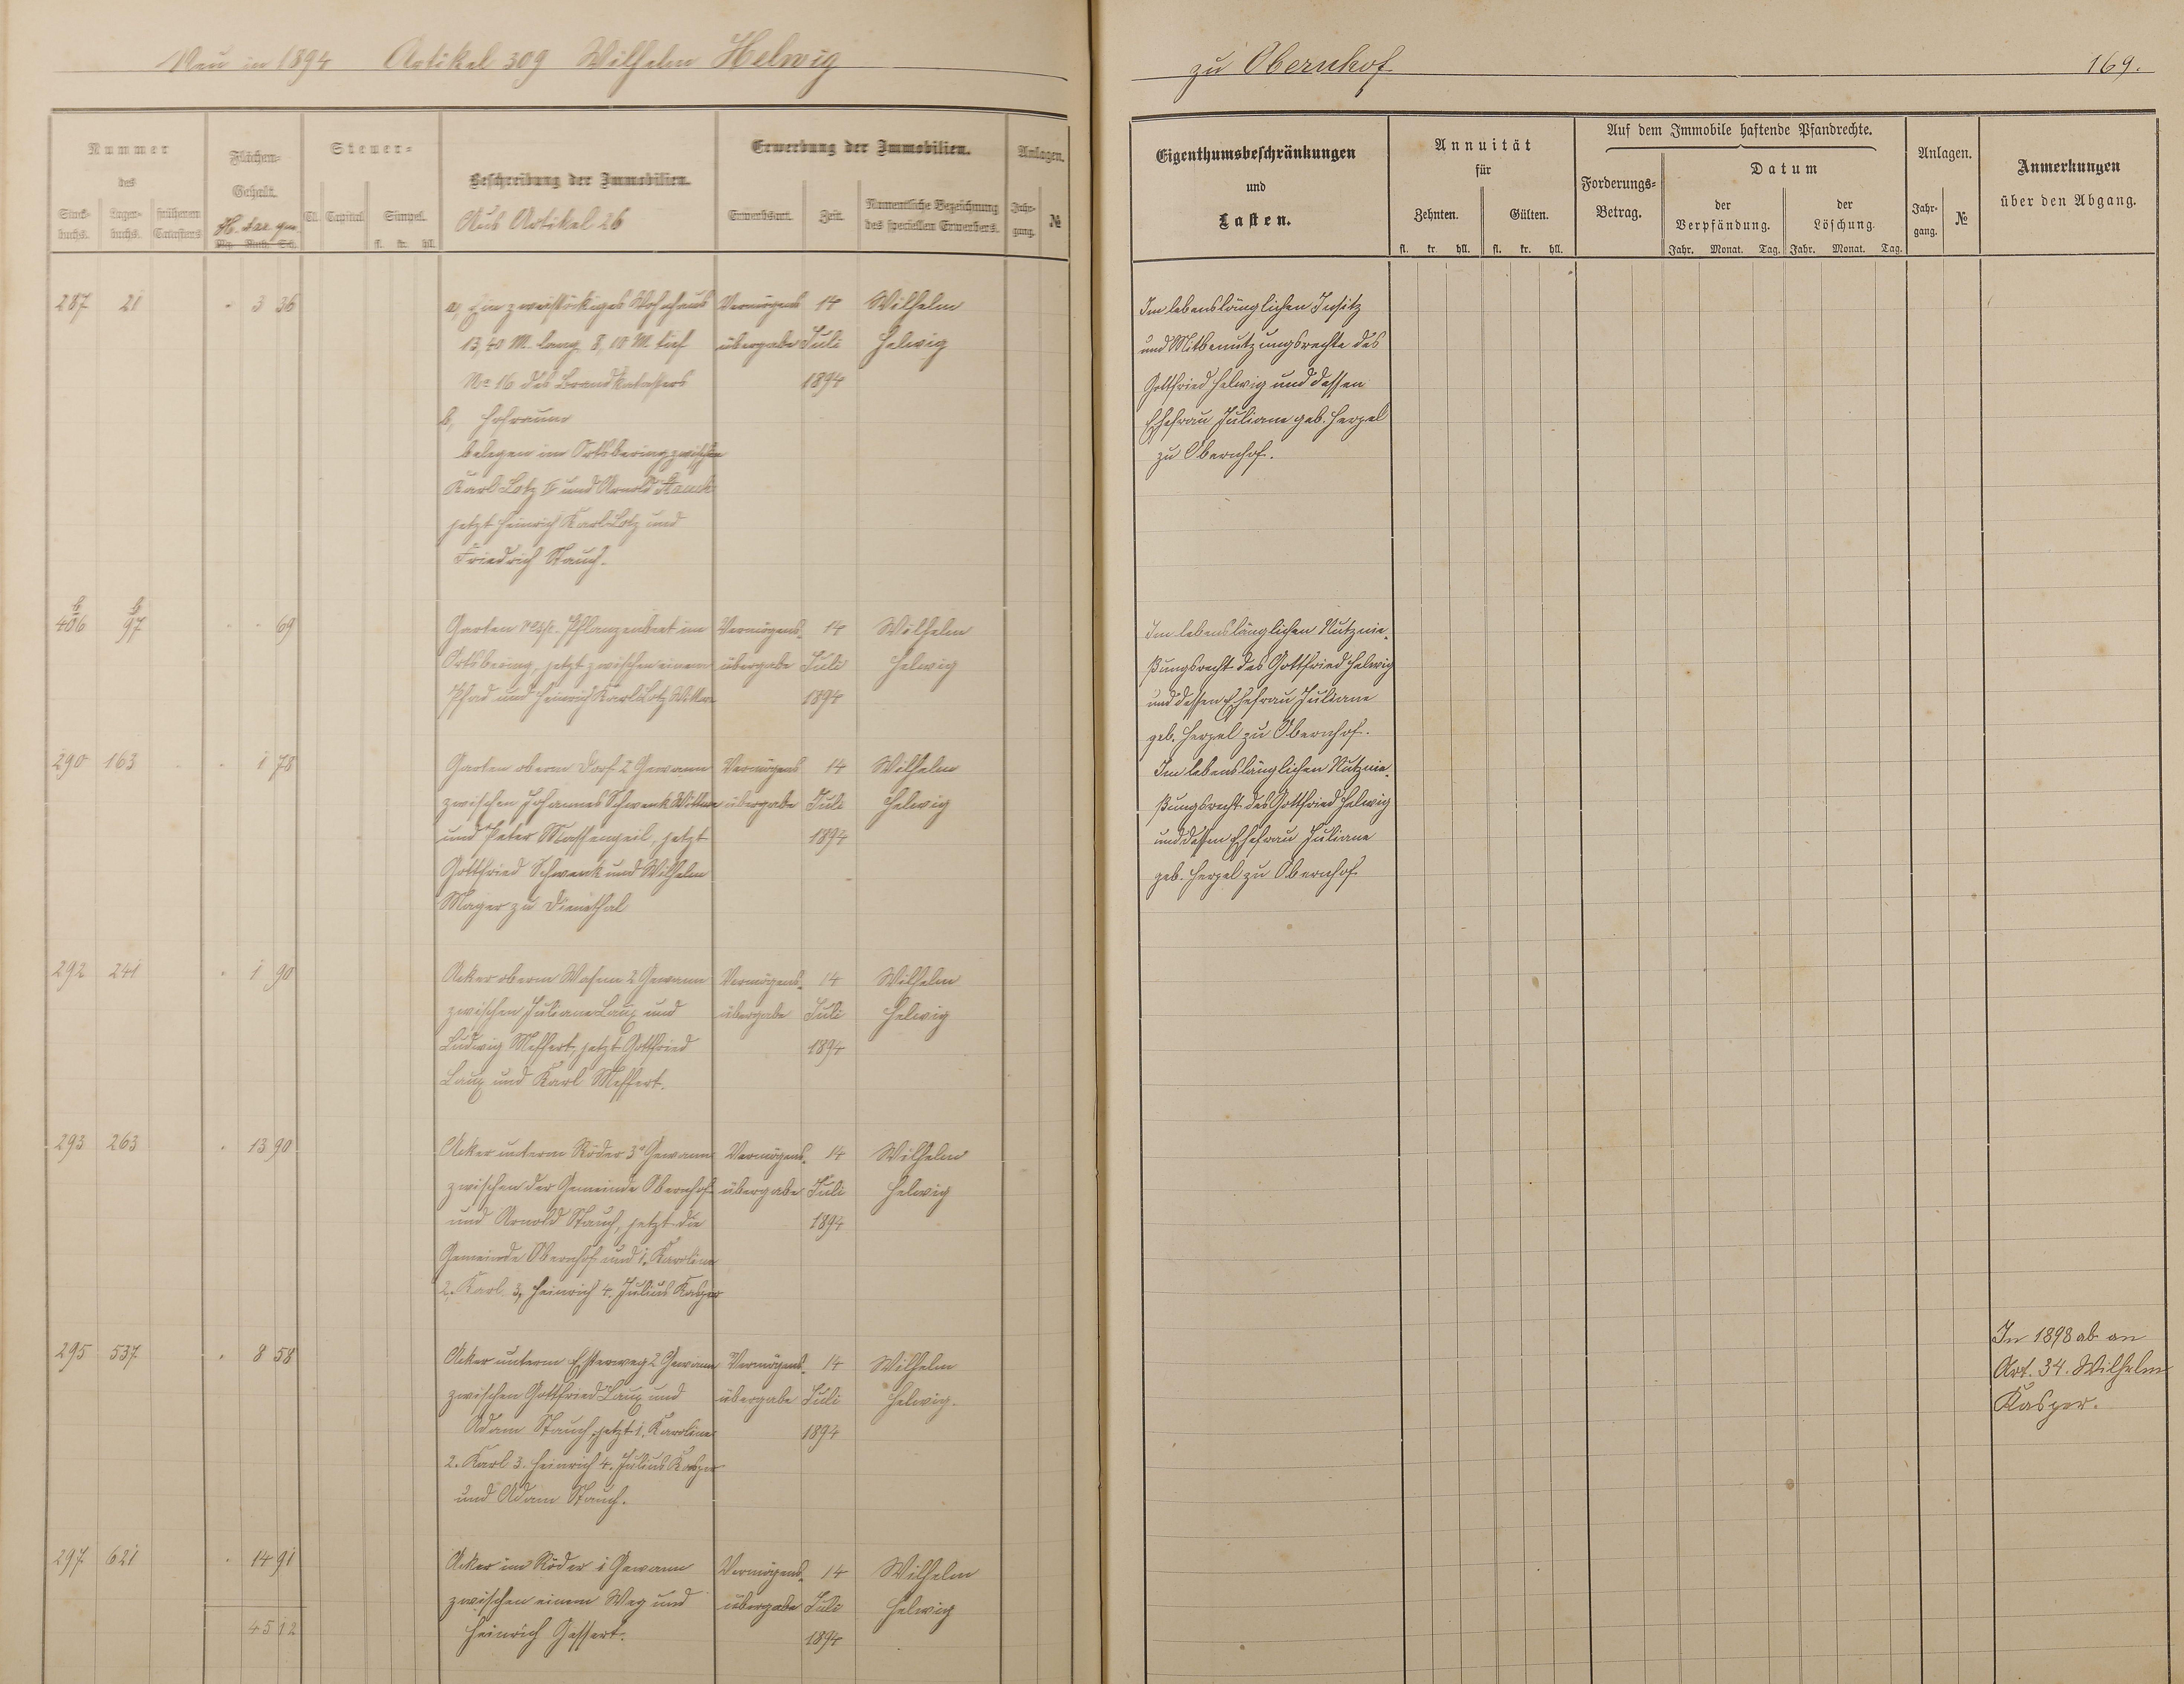 Neu in 1894 Artikel 309 Wilhelm Helwig
Nummer
des
Stock-
buchs.
Lager-
buchs.
früheren
Catasters
Flächen-
Gehalt.
H. Are qm.
Mg. Ruth. Sch.
Steuer-
Cl.
Capital
Simpel.
fl. kr. hll.
Beschreibung der Immobilien.
Aus Artikel 26
Erwerbung der Immobilien.
Erwerbsart.
Zeit.
Namentliche Bezeichnung
des speciellen Erwerbers.
Anlagen.
Jahr-
gang.
№
287 21 - 3 36
a, Ein zweistöckiges Wohnhaus
13,40 M. lang 8,10 M. tief
No 16 des Brandkatasters
b, Hofraum
belegen im Ortsbering zwischen
Karl Lotz und Arnold Stauch
jetzt Heinrich Karl Lotz und
Friedrich Stauch.
Vermögens
übergabe
14
Juli
1894
Wilhelm
Helwig
b b
406 97 - - 69
Garten resp. Pflanzenbeet im
Ortsbering, jetzt zwischen einem
Pfad und Heinrich Karl Lotz Wittwe
Vermögens-
übergabe
14
Juli
1894
Wilhelm
Helwig
290 163 - 1 78
Garten oberm Dorf 2 Gewann
zwischen Johannes Schwenk Wittwe
und Peter Massengeil, jetzt
Gottfried Schwenk und Wilhelm
Mager zu Dienethal
Vermögens
übergabe
14
Juli
1894
Wilhelm
Helwig
292 241 - 1 90
Acker oberm Wasem 2 Gewann
zwischen Juliane Laux und
Ludwig Meffert, jetzt Gottfried
Laux und Karl Meffert.
Vermögens-
übergabe
14
Juli
1894
Wilhelm
Helwig
293 263 - 13 90
Acker unterm Röder 3r Gewann
zwischen der Gemeinde Obernhof
und Arnold Stauch, jetzt die
Gemeinde Obernhof und 1. Karoline
2. Karl 3, Heinrich 4. Julius Kasper
Vermögens-
übergabe
14
Juli
1894
Wilhelm
Helwig
295 537 - 8 58
Acker unterm 2 Gewann
zwischen Gottfried Laux und
Adam Stauch, jetzt 1. Karoline
2. Karl 3. Heinrich 4. Julius Kasper
und Adam Stauch.
Vermögens-
übergabe
14
Juli
1894
Wilhelm
Helwig.
297 621 - 14 91
Acker im Röder 1 Gewann
zwischen einem Weg und
Heinrich Gessert.
Vermögens-
übergabe
14
Juli
1894
Wilhelm
Helwig
45 12
zu Obernhof 169.
Eigenthumsbeschränkungen
und
Lasten.
Annuität
für
Zehnten.
Gülten.
fl. kr. hll. fl. kr. hll.
Auf dem Immobile haftende Pfandrechte.
Forderungs-
Betrag.
Datum
der
Verpfändung.
der
Löschung.
Jahr. Monat. Tag. Jahr. Monat. Tag.
Anlagen.
Jahr-
gang.
№
Anmerkungen
über den Abgang.
Im lebenslänglichen Insitz
und Mitbenutzungsrechte des
Gottfried Helwig und dessen
Ehefrau Juliane geb. Hergel
zu Obernhof.
Im lebenslänglichen Nutznie-
ßungsrecht des Gottfried Helwig
und dessen Ehefrau Juliane
geb. Hergel zu Obernhof.
Im lebenslänglichen Nutznie-
ßungsrecht des Gottfried Helwig
und dessen Ehefrau Juliane
geb. Hergel zu Obernhof
In 1898 ab an
Art. 34. Wilhelm
Kasper.